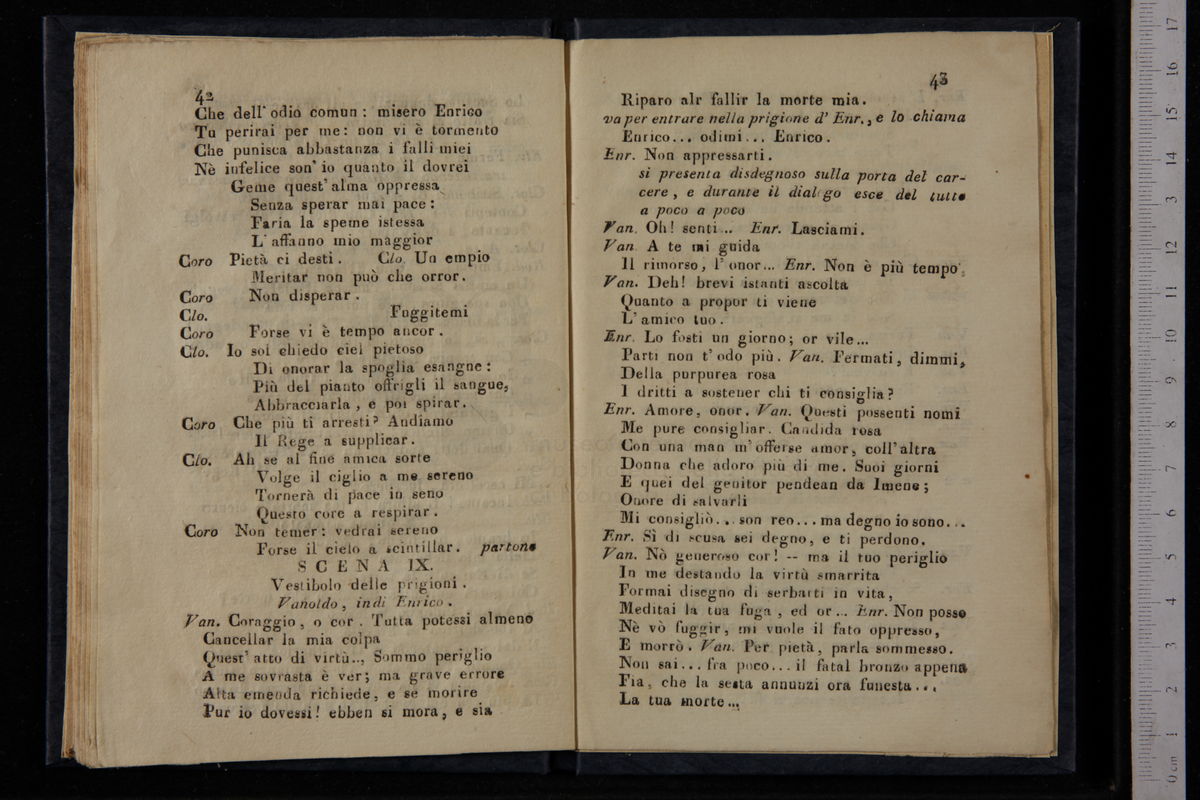 42
Che dell' odio comun : misero Enrico
Tu perirai per me : non vi è tormento
Che punisca abbastanza i falli miei
Nè infelice son' io quanto il dovrei
Geme quest' alma oppressa
Senza sperar mai pace :
Faria la speme istessa
L' affanno mio maggior
Coro Pietà ci desti . Clo. Un empio
Meritar non può che orror.
Coro Non disperar .
Clo. Fuggitemi
Coro Forse vi è tempo ancor .
Clo. Io sol chiedo ciel pietoso
Di onorar la spoglia esangue :
Più del pianto offrigli il sangue,
Abbracciarla , e poi spirar.
Coro Che più ti arresti? Andiamo
Il Rege a supplicar.
Clo. Ah se al fine amica sorte
Volge il ciglio a me sereno
Tornerà di pace in seno
Questo core a respirar .
Coro Non temer : vedrai sereno
Forse il cielo a scintillar. partono
SCENA IX.
Vestibolo delle prigioni .
Vanoldo , indi Enrico .
Van. Coraggio , o cor . Tutta potessi almeno
Cancellar la mia colpa
Quest' atto di virtù... Sommo periglio
A me sovrasta è ver; ma grave errore
Alta emenda richiede, e se morire
Pur io dovessi! ebben si mora, e sia
43
Riparo alr fallir la morte mia.
va per entrare nella prigione d' Enr., e lo chiama
Enrico... odimi... Enrico.
Enr. Non appressarti.
si presenta disdegnoso sulla porta del car-
cere , e durante il dialogo esce del tutto
a poco a poco
Van. Oh! senti... Enr. Lasciami.
Van. A te mi guida
Il rimorso, l' onor... Enr. Non è più tempo.
Van. Deh! brevi istanti ascolta
Quanto a propor ti viene
L' amico tuo.
Enr. Lo fosti un giorno; or vile...
Parti non t' odo più. Van. Fermati, dimmi,
Della purpurea rosa
I dritti a sostener chi ti consiglia?
Enr. Amore, onor. Van. Questi possenti nomi
Me pure consigliar. Candida rosa
Con una man m' offerse amor, coll' altra
Donna che adoro più di me. Suoi giorni
E quei del genitor pendean da Imene;
Onore di salvarli
Mi consigliò... son reo... ma degno io sono...
Enr. Sì di scusa sei degno, e ti perdono.
Van. Nò generoso cor! -- ma il tuo periglio
In me destando la virtù smarrita
Formai disegno di serbarti in vita,
Meditai la tua fuga , ed or... Enr. Non posso
Nè vò fuggir, mi vuole il fato oppresso,
E morrò. Van. Per pietà, parla sommesso.
Non sai... fra poco... il fatal bronzo appena
Fia, che la sesta annunzi ora funesta...
La tua morte...
0 cm 1 2 3 4 5 6 7 8 9 10 11 12 13 14 15 16 17